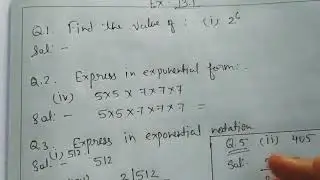 Ex: 13.1
Q.1. Find the value of: (i) 2⁶
Sol:-
Q.2. Express in exponential form:-
(iv) 5×5×7×7×7
Sol:- 5×5×7×7×7 =
Q.3. Express in exponential notation
(i) 512
Sol:- 512
2|512
Q.5 (ii) 405
Sol: